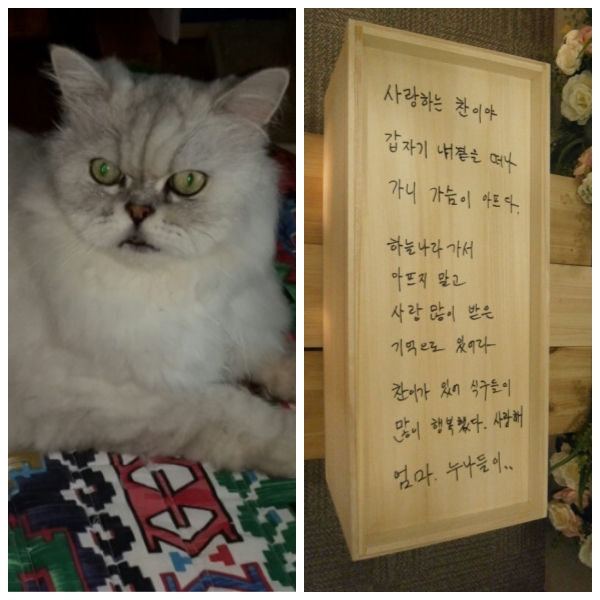 사랑하는 찬이야
갑자기 내곁을 떠나
가니 가슴이 아프다.
하늘나라 가서
아프지 말고
사랑 많이 받은
기억으로 있어라
찬이가 있어 식구들이
많이 행복했다. 사랑해
엄마. 누나들이..